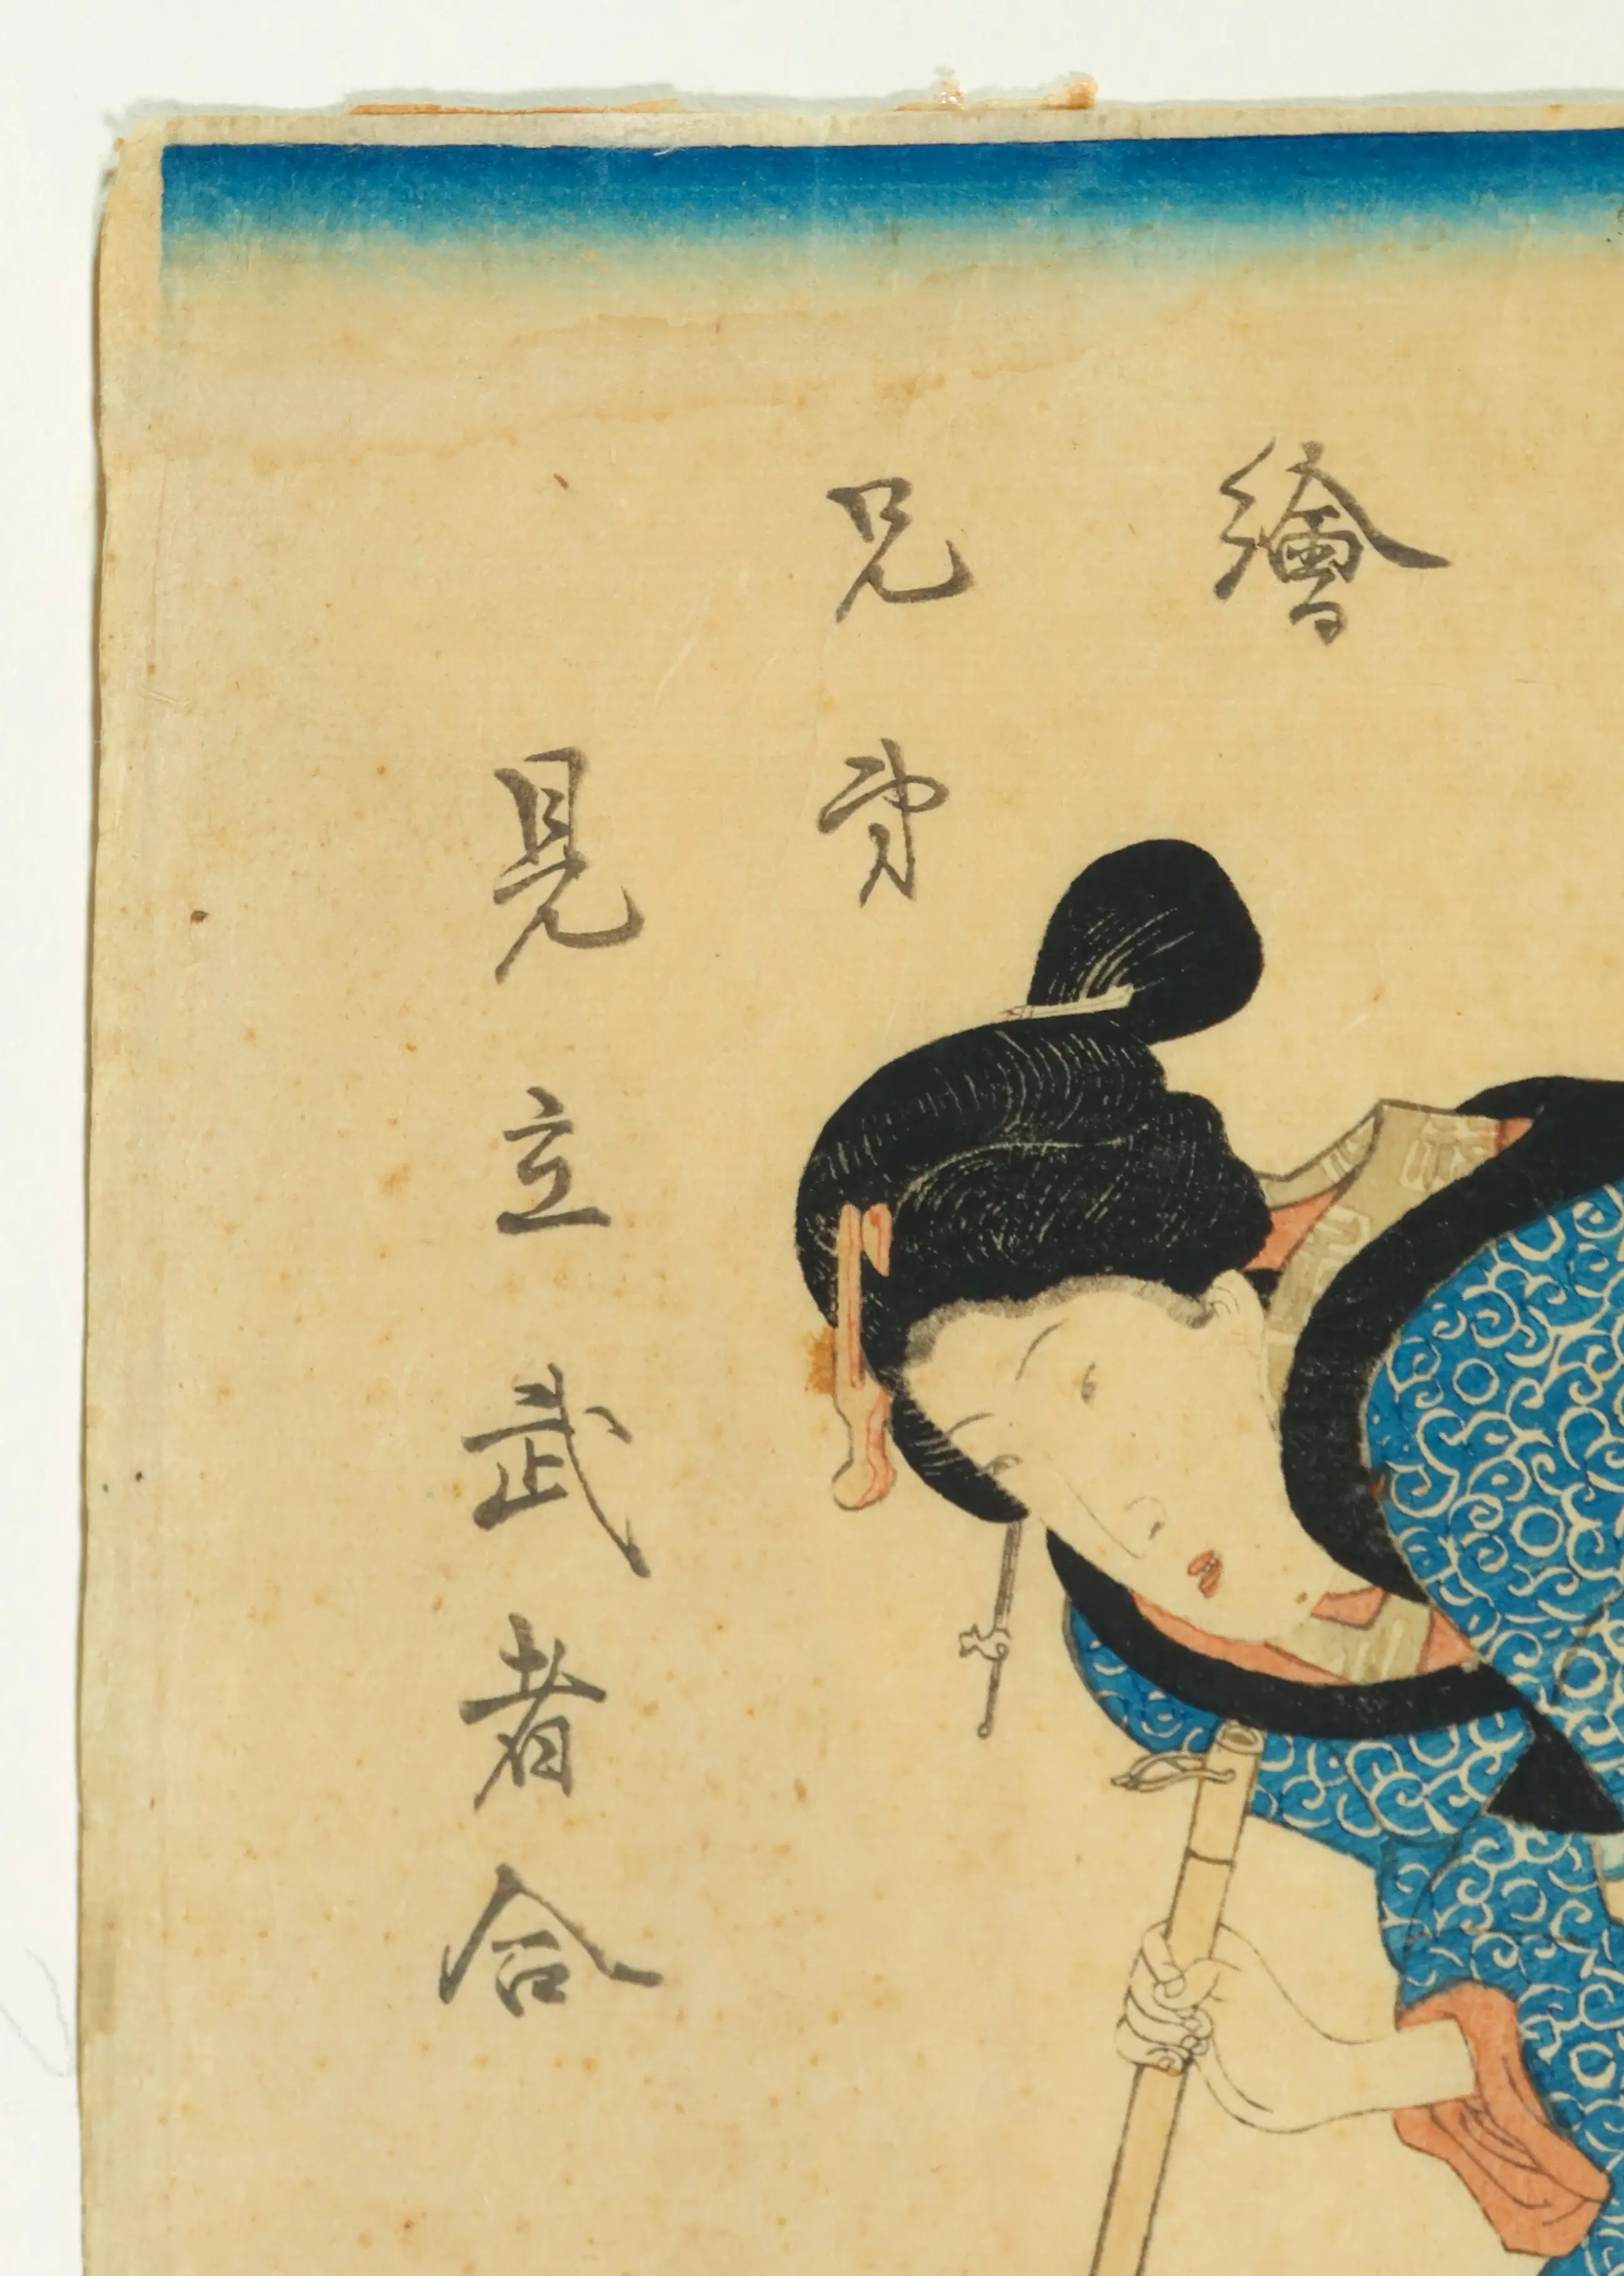 繪
兄弟
見立武者合